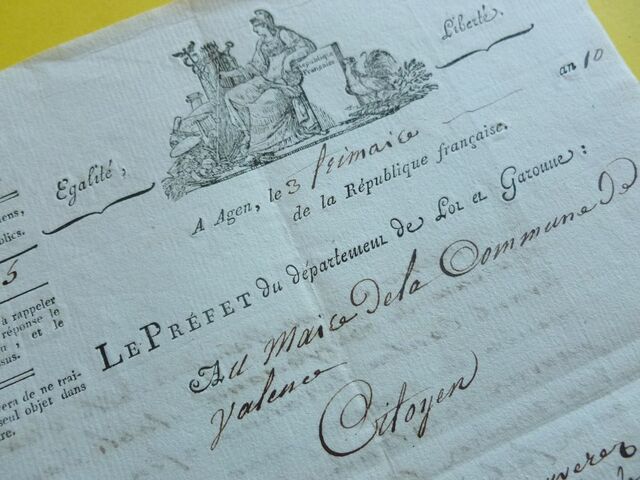 Liberté.
République
Française
Egalité,
A Agen, le 3 frimaire an 10
de la République française.
LE PRÉFET du département de Lot et Garonne :
Au Maire de la Commune de
Valence
Citoyen
iens,
blics.
5
à rappeler
réponse le
, et le
sus.
vera de ne trai-
seul objet dans
re.